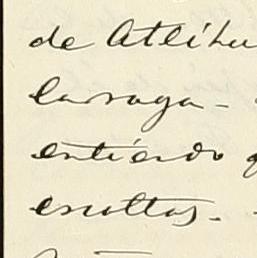 de Atlihu
larraga -
entiendo q
escritos. -